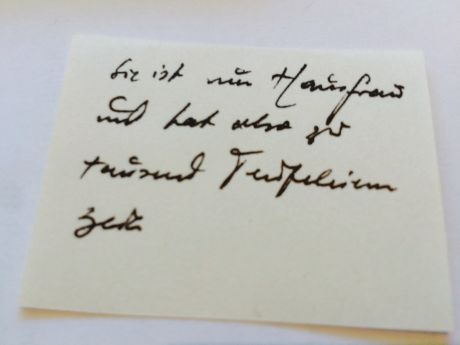 Sie ist nur Hausfrau
und hat also zu
tausend Teufeleien
Zeit